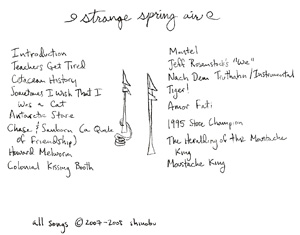 strange spring air
Introduction
Teachers Get Tired
Cetacean History
Sometimes I Wish That I
Was a Cat
Antarctic Store
Chase & Sanborn (a Quale
of Friendship)
Howard Melworm
Colonial Kissing Booth
Mustel
Jeff Rosenstock's "We"
Nach Dem Truthahn/Instrumental
Tiger!
Amor Fati
1995 Store Champion
The Heralding of the Mustache
King
Moustache King
all songs © 2007-2008 shinobu